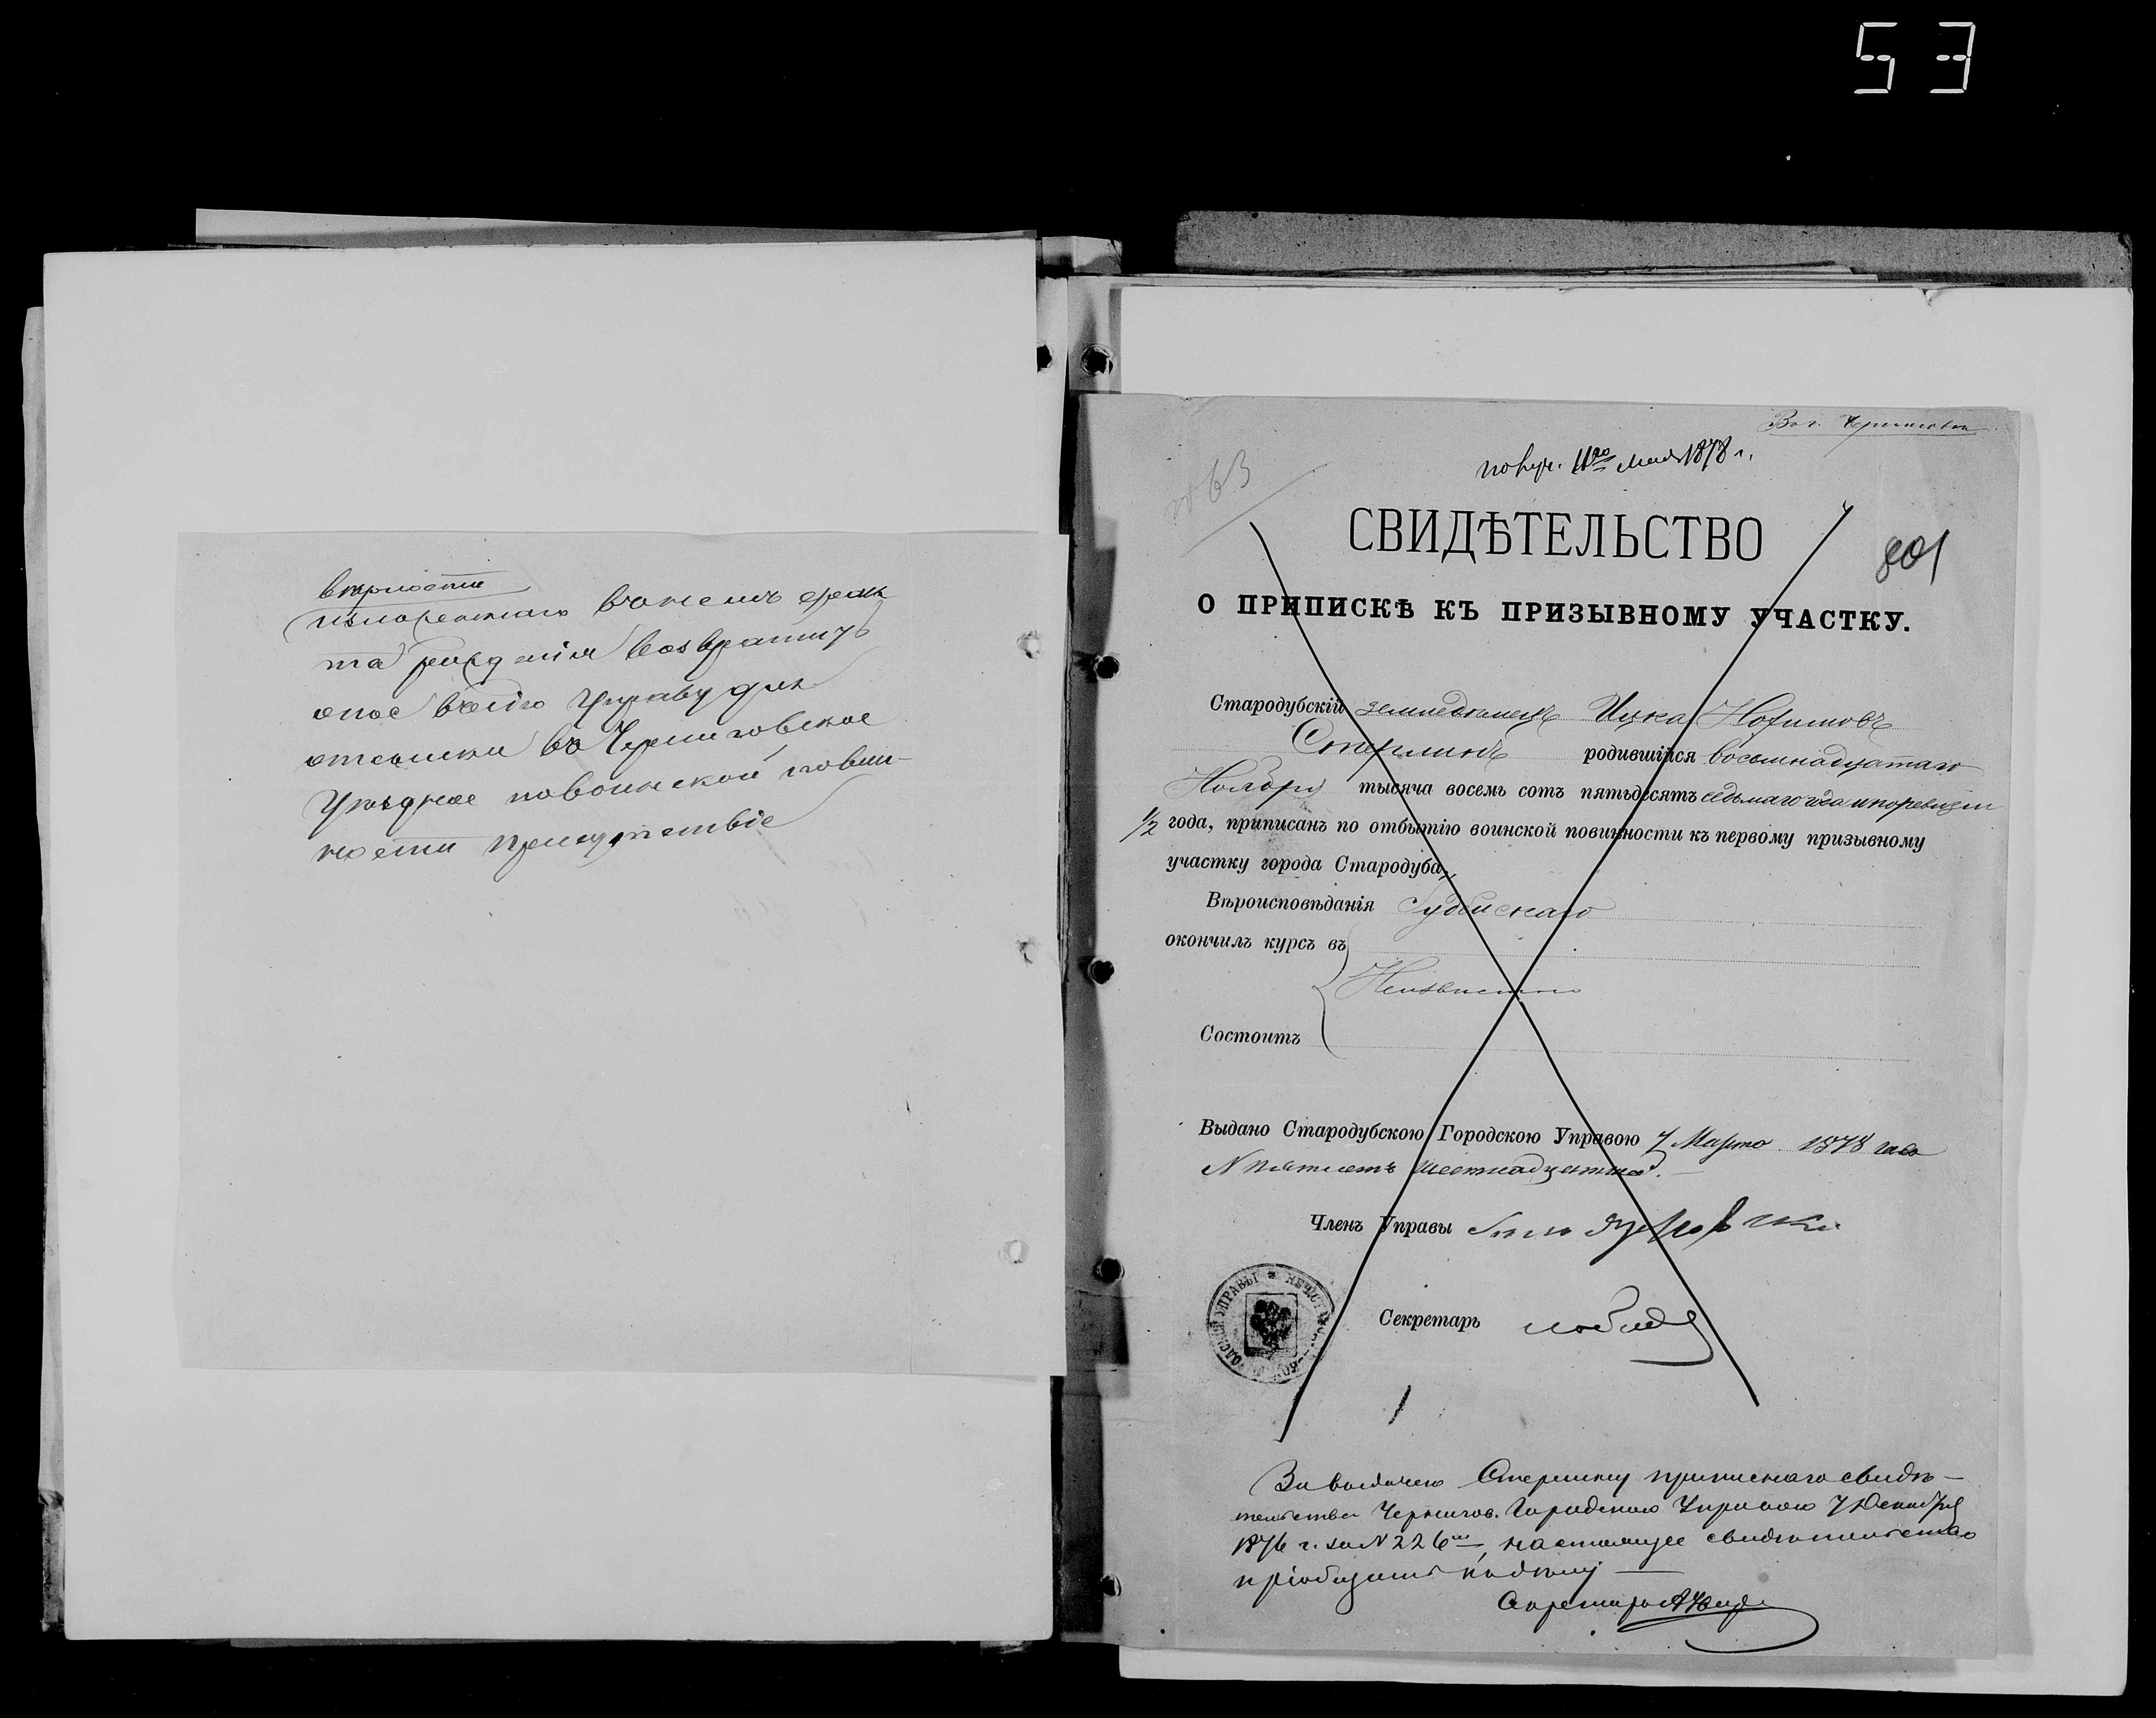 53
вѣрности
изложеннаго въ немъ фак
та рожденія возвратить
оное въ сію Управу для
отсылки въ Черниговское
Уѣздное по воинской повин-
ности присутствіе
Въ г. Черниговъ
№ 63
получ. 11го Мая 1878 г.
СВИДѢТЕЛЬСТВО
801
О ПРИПИСКѢ КЪ ПРИЗЫВНОМУ УЧАСТКУ.
Стародубскій земледѣлецъ Ицка Нохимовъ
Стерлинъ родившійся восемнадцатаго
Ноября тысяча восемь сотъ пятьдесятъ седьмаго года и по ревизіи
1/2 года, приписанъ по отбытію воинской повинности къ первому призывному
участку города Стародуба,
Вѣроисповѣданія Іудейскаго
окончилъ курсъ въ
Неизвѣстно
Состоитъ
Выдано Стародубскою Городскою Управою 7 Марта 1878 года
N пятьсотъ шестнадцатый.
Членъ Управы
Секретарь
За выдачею Стерлину приписнаго свидѣ-
тельства Чернигов. Городскою Управою 7 Декабря
1876 г. за N 226м, настоящее свидѣтельство
пріобщить къ дѣлу
Секретарь